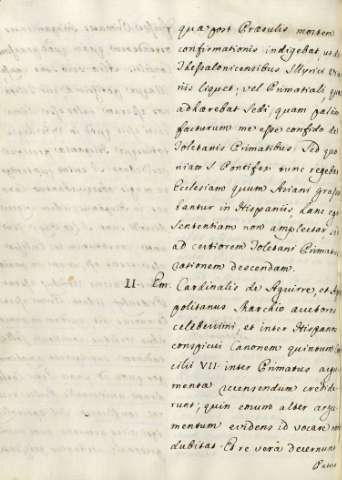 qua post Præsulis mortem
confirmationis indigebat, ut de
Thessalonicensibus Illyrici
liquet, vel Primatiali
adhærebat Sedi, quam palio
facturum me esse confido de
Toletanis Primatibus. Sed quo
niam S. Pontifex nunc regebat
Ecclesiam quum Ariani
bantur in Hispaniis, hanc ego
sententiam non amplector
ad certiorem Toletani Primatus
cationem descendam.
II. Em. Cardinalis de Aguirre, et
politanus Marchio auctores
celeberrimi, et inter Hispanos
conspicui Canonem quintum
cilii VII. inter Primatus argu
menta recensendum credide
runt; quin enim alter argu
mentum evidens id vocare non
dubitat. Et re vera decernunt
Patres